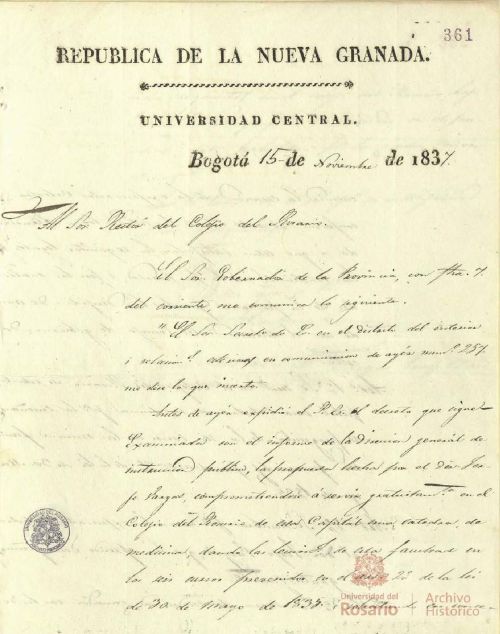 361
REPUBLICA DE LA NUEVA GRANADA.
UNIVERSIDAD CENTRAL.
Bogotá 15 de Noviembre de 1837.
Al Sor. Rector del Colejio del Rosario.
El Sor. Gobernador de la Provincia, con fha. 7.
del corriente, me comunica lo siguiente.
"El Sor. Secreto. de E. en el Despacho del interior
i relacions. esteriores en comunicacion de ayer num.º 257
me dice lo que inserto.
Antes de ayer espidió el P. E. el decreto que sigue
Examinada con el informe de la Direccion general de
instruccion publica, la propuesta hecha por el Dor. Jose
Vargas, comprometiendose á servir gratuitamte. en el
Colejio del Rosario de esta Capital una catedra de
medicina, dando las lecions. de esta facultad en
los seis cursos prevenidos en el 23 de la lei
de 30 de mayo de 1835
Universidad del
Rosario
Archivo
Histórico